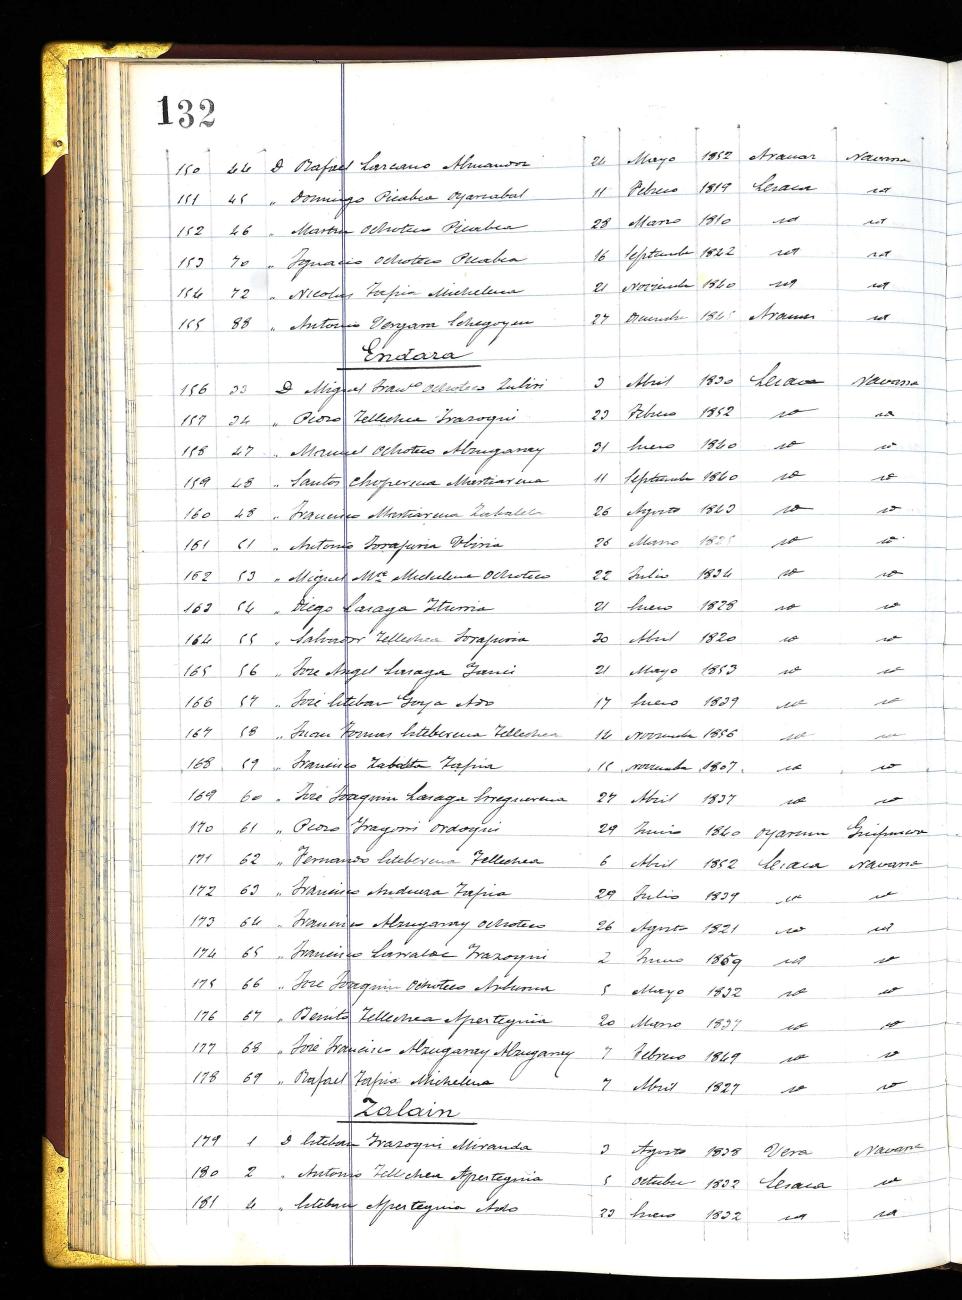 132
150 44 D Rafael Lascano Almandoz 24 Mayo 1852 Aranaz Navarra
151 45 " Domingo Picabea Oyarzabal 11 Febrero 1819 Lesaca id
152 46 " Martin Ochoteco Picabea 28 Marzo 1810 id id
153 70 " Ygnacio Ochoteco Picabea 16 Septiembre 1842 id id
154 72 " Nicolas Tapia Michelena 21 Noviembre 1840 id id
155 88 " Antonio Vergara Echegoyen 27 Diciembre Aranaz id
Endara
156 33 D Miguel Franco Ochoteco Zubiri 3 Abril 1830 Lesaca Navarra
157 34 " Pedro Tellechea Yrazoqui 23 Febrero 1852 id id
158 47 " Manuel Ochoteco Alzugaray 31 Enero 1840 id id
159 48 " Santos Choperena Martiarena 11 Septiembre 1840 id id
160 48 " Francisco Martiarena Zubaleta 26 Agosto 1843 id id
161 51 " Antonio Sorapuria Ubiria 26 Marzo 1825 id id
162 53 " Miguel Mra Michelena Ochoteco 22 Julio 1834 id id
163 54 " Diego Lasaga Yturria 21 Enero 1828 id id
164 55 " Salvador Tellechea Sorapuria 30 Abril 1820 id id
165 56 " Jose Angel Lasaga 21 Mayo 1853 id id
166 57 " José Esteban Goya Ado 17 Enero 1839 id id
167 58 " Juan Tomas Esteberena Tellechea 14 Noviembre 1856 id id
168 59 " Francisco Zabaleta Tapia 15 Noviembre 1807 id id
169 60 " José Joaquin Lasaga Erreguerena 27 Abril 1837 id id
170 61 " Pedro Yragorri Ordoqui 29 Junio 1840 Oyarzun Guipuzcoa
171 62 " Fernando Esteberena Tellechea 6 Abril 1852 Lesaca Navarra
172 63 " Francisco Andueza Tapia 29 Julio 1839 id id
173 64 " Francisco Alzugaray Ochoteco 26 Agosto 1821 id id
174 65 " Francisco Larralde Yrazoqui 2 Junio 1859 id id
175 66 " José Joaquin Ochoteco Arburua 5 Mayo 1832 id id
176 67 " Benito Tellechea Aperteguia 20 Marzo 1837 id id
177 68 " José Francisco Alzugaray Alzugaray 7 Febrero 1849 id id
178 69 " Rafael Tapia Michelena 7 Abril 1827 id id
Zalain
179 1 D Esteban Yrazoqui Miranda 3 Agosto 1838 Vera Navarra
180 2 " Antonio Tellechea Aperteguia 5 Octubre 1832 Lesaca id
181 4 " Esteban Aperteguia Ado 23 Enero 1832 id id